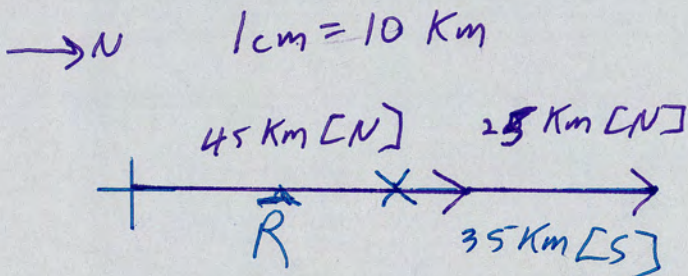 →N 1cm = 10 Km
45 Km [N] 25 Km [N]
R 35 Km [S]